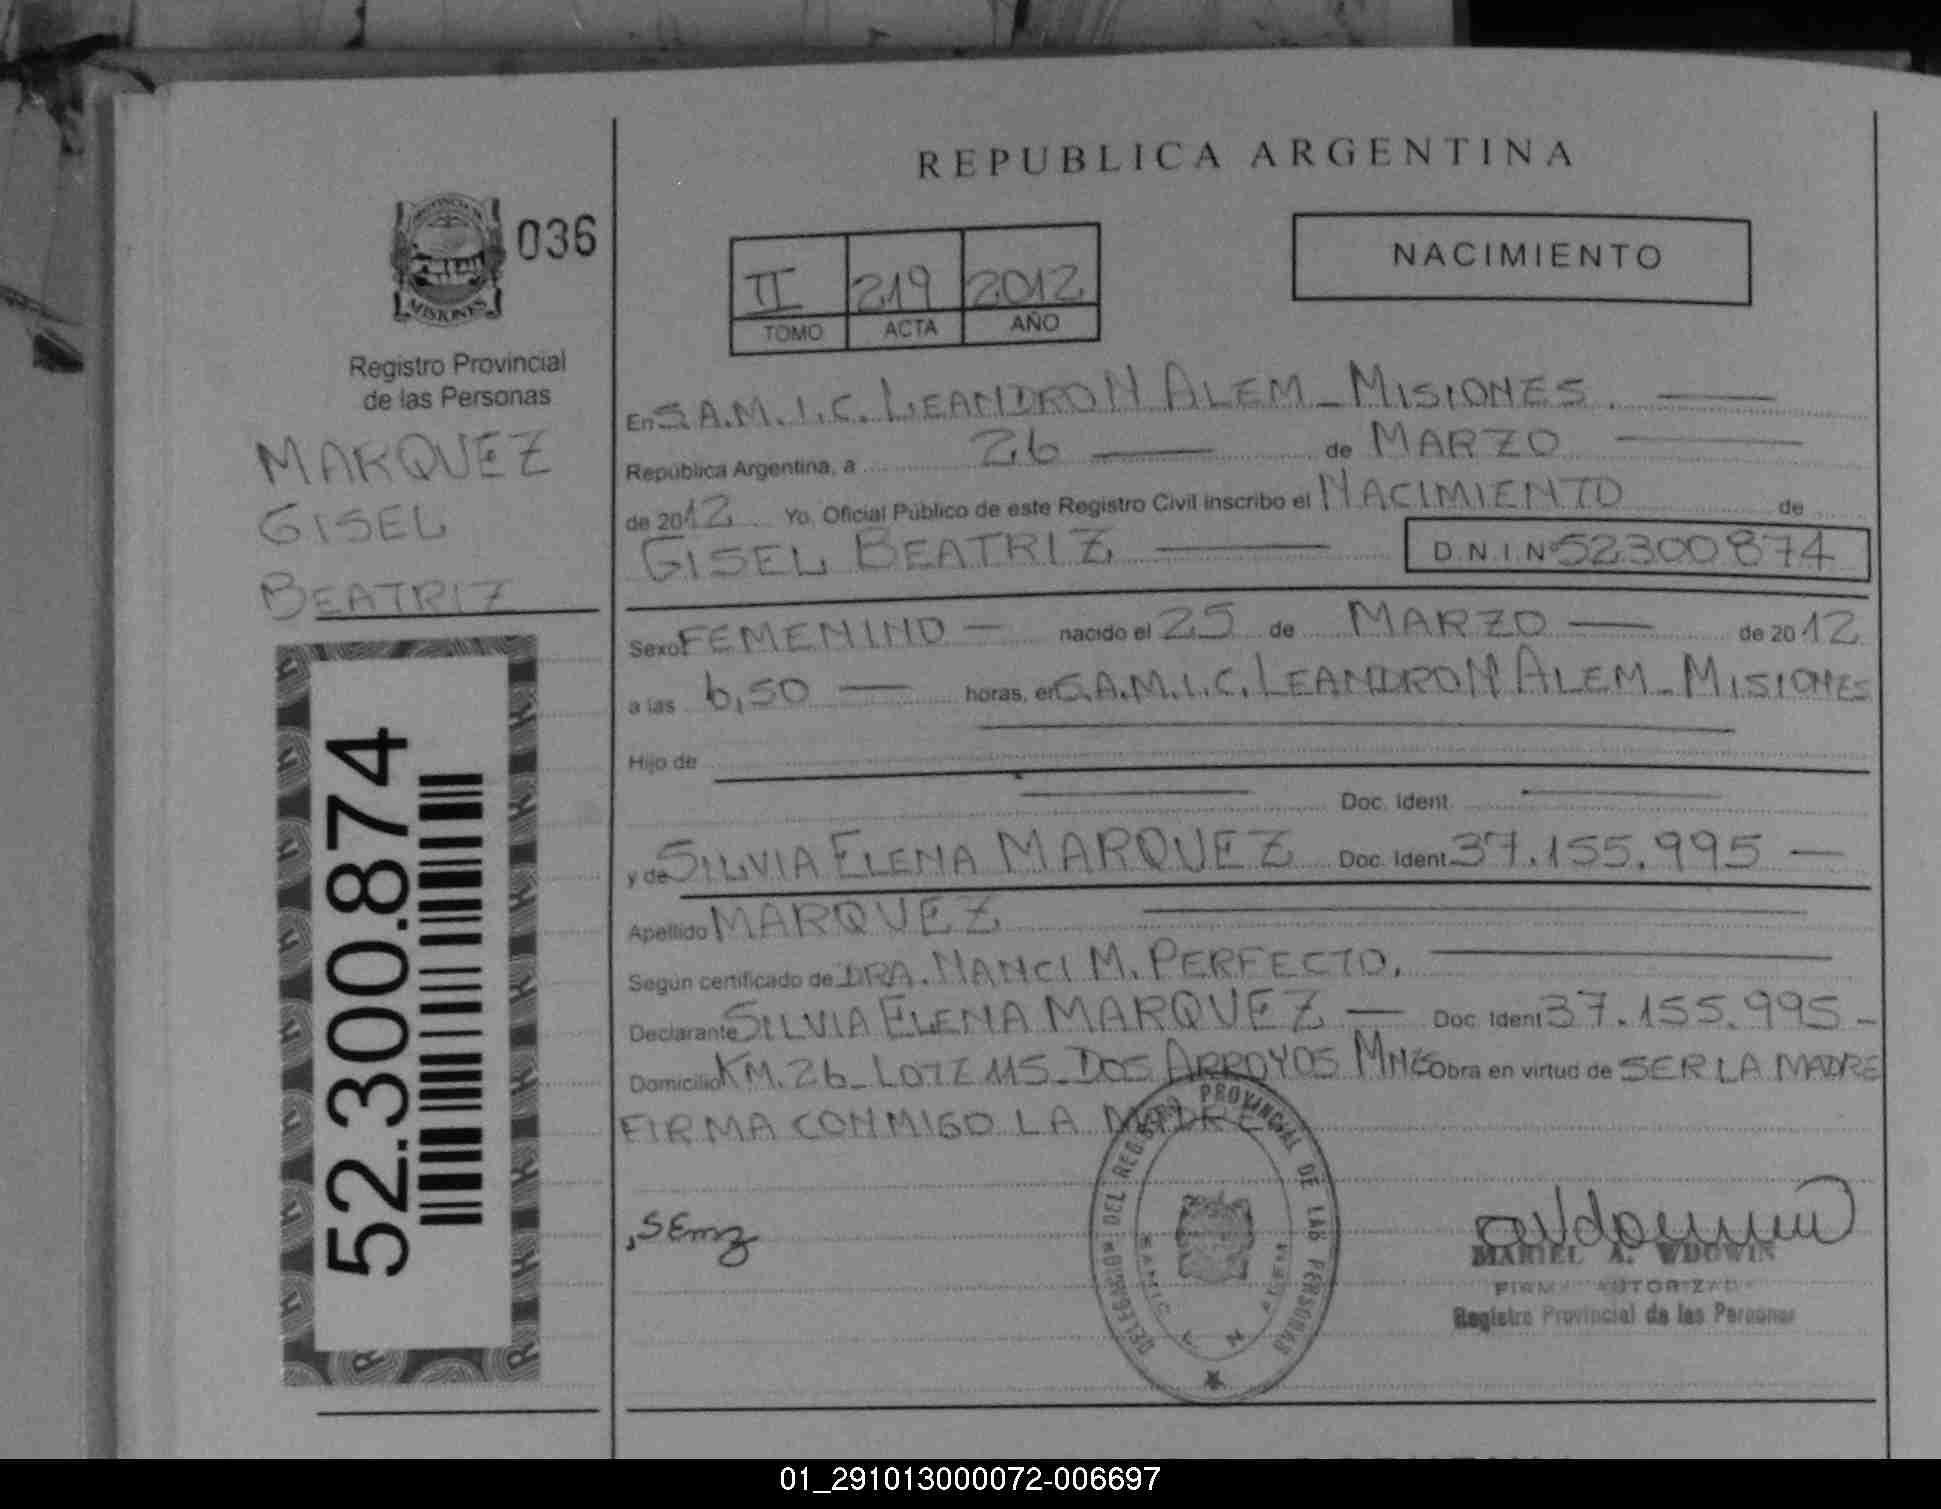 REPUBLICA ARGENTINA
PROVINCIA DE
MISIONES
036
Registro Provincial
de las Personas
MARQUEZ
GISEL
BEATRIZ
52.300.874
II 219 2012
TOMO ACTA AÑO
NACIMIENTO
En S.A.M.I.C. LEANDRO N ALEM - MISIONES.
República Argentina, a 26 de MARZO
de 2012 Yo, Oficial Público de este Registro Civil inscribo el NACIMIENTO de
GISEL BEATRIZ D.N.I.Nº 52300874
Sexo FEMENINO nacido el 25 de MARZO de 2012
a las 6,50 horas, en S.A.M.I.C. LEANDRO N ALEM - MISIONES
Hijo de
Doc. Ident.
y de SILVIA ELENA MARQUEZ Doc. Ident. 37.155.995
Apellido MARQUEZ
Según certificado de DRA. NANCI M. PERFECTO.
Declarante SILVIA ELENA MARQUEZ Doc. Ident 37.155.995
Domicilio KM. 26 - LOTE 115 - DOS ARROYOS MNES Obra en virtud de SER LA MADRE
FIRMA CONMIGO LA MADRE
DELEGACION DEL REGISTRO PROVINCIAL DE LAS PERSONAS
SAMIC L. N. ALEM
MARIEL A. WDOWIN
FIRMA AUTORIZADA
Registro Provincial de las Personas
01_291013000072-006697